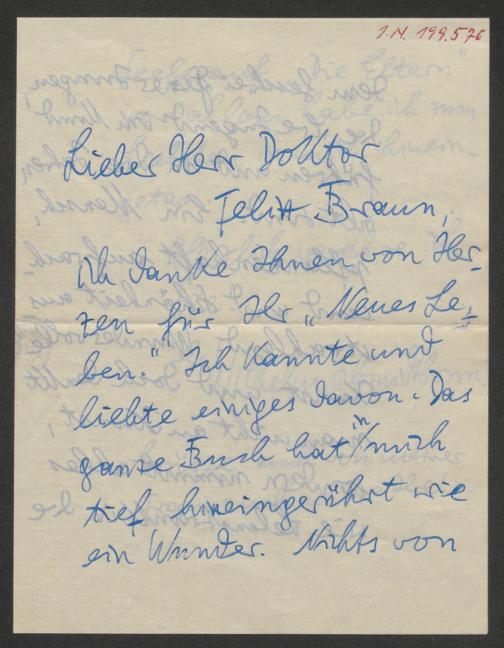 I.N. 199.576
Lieber Herr Doktor
Felix Braun,
ich danke Ihnen von Her-
zen für Ihr „Neues Le-
ben." Ich kannte und
liebte einiges davon. Das
ganze Buch hat in mich
tief hineingerührt wie
ein Wunder. Nichts von